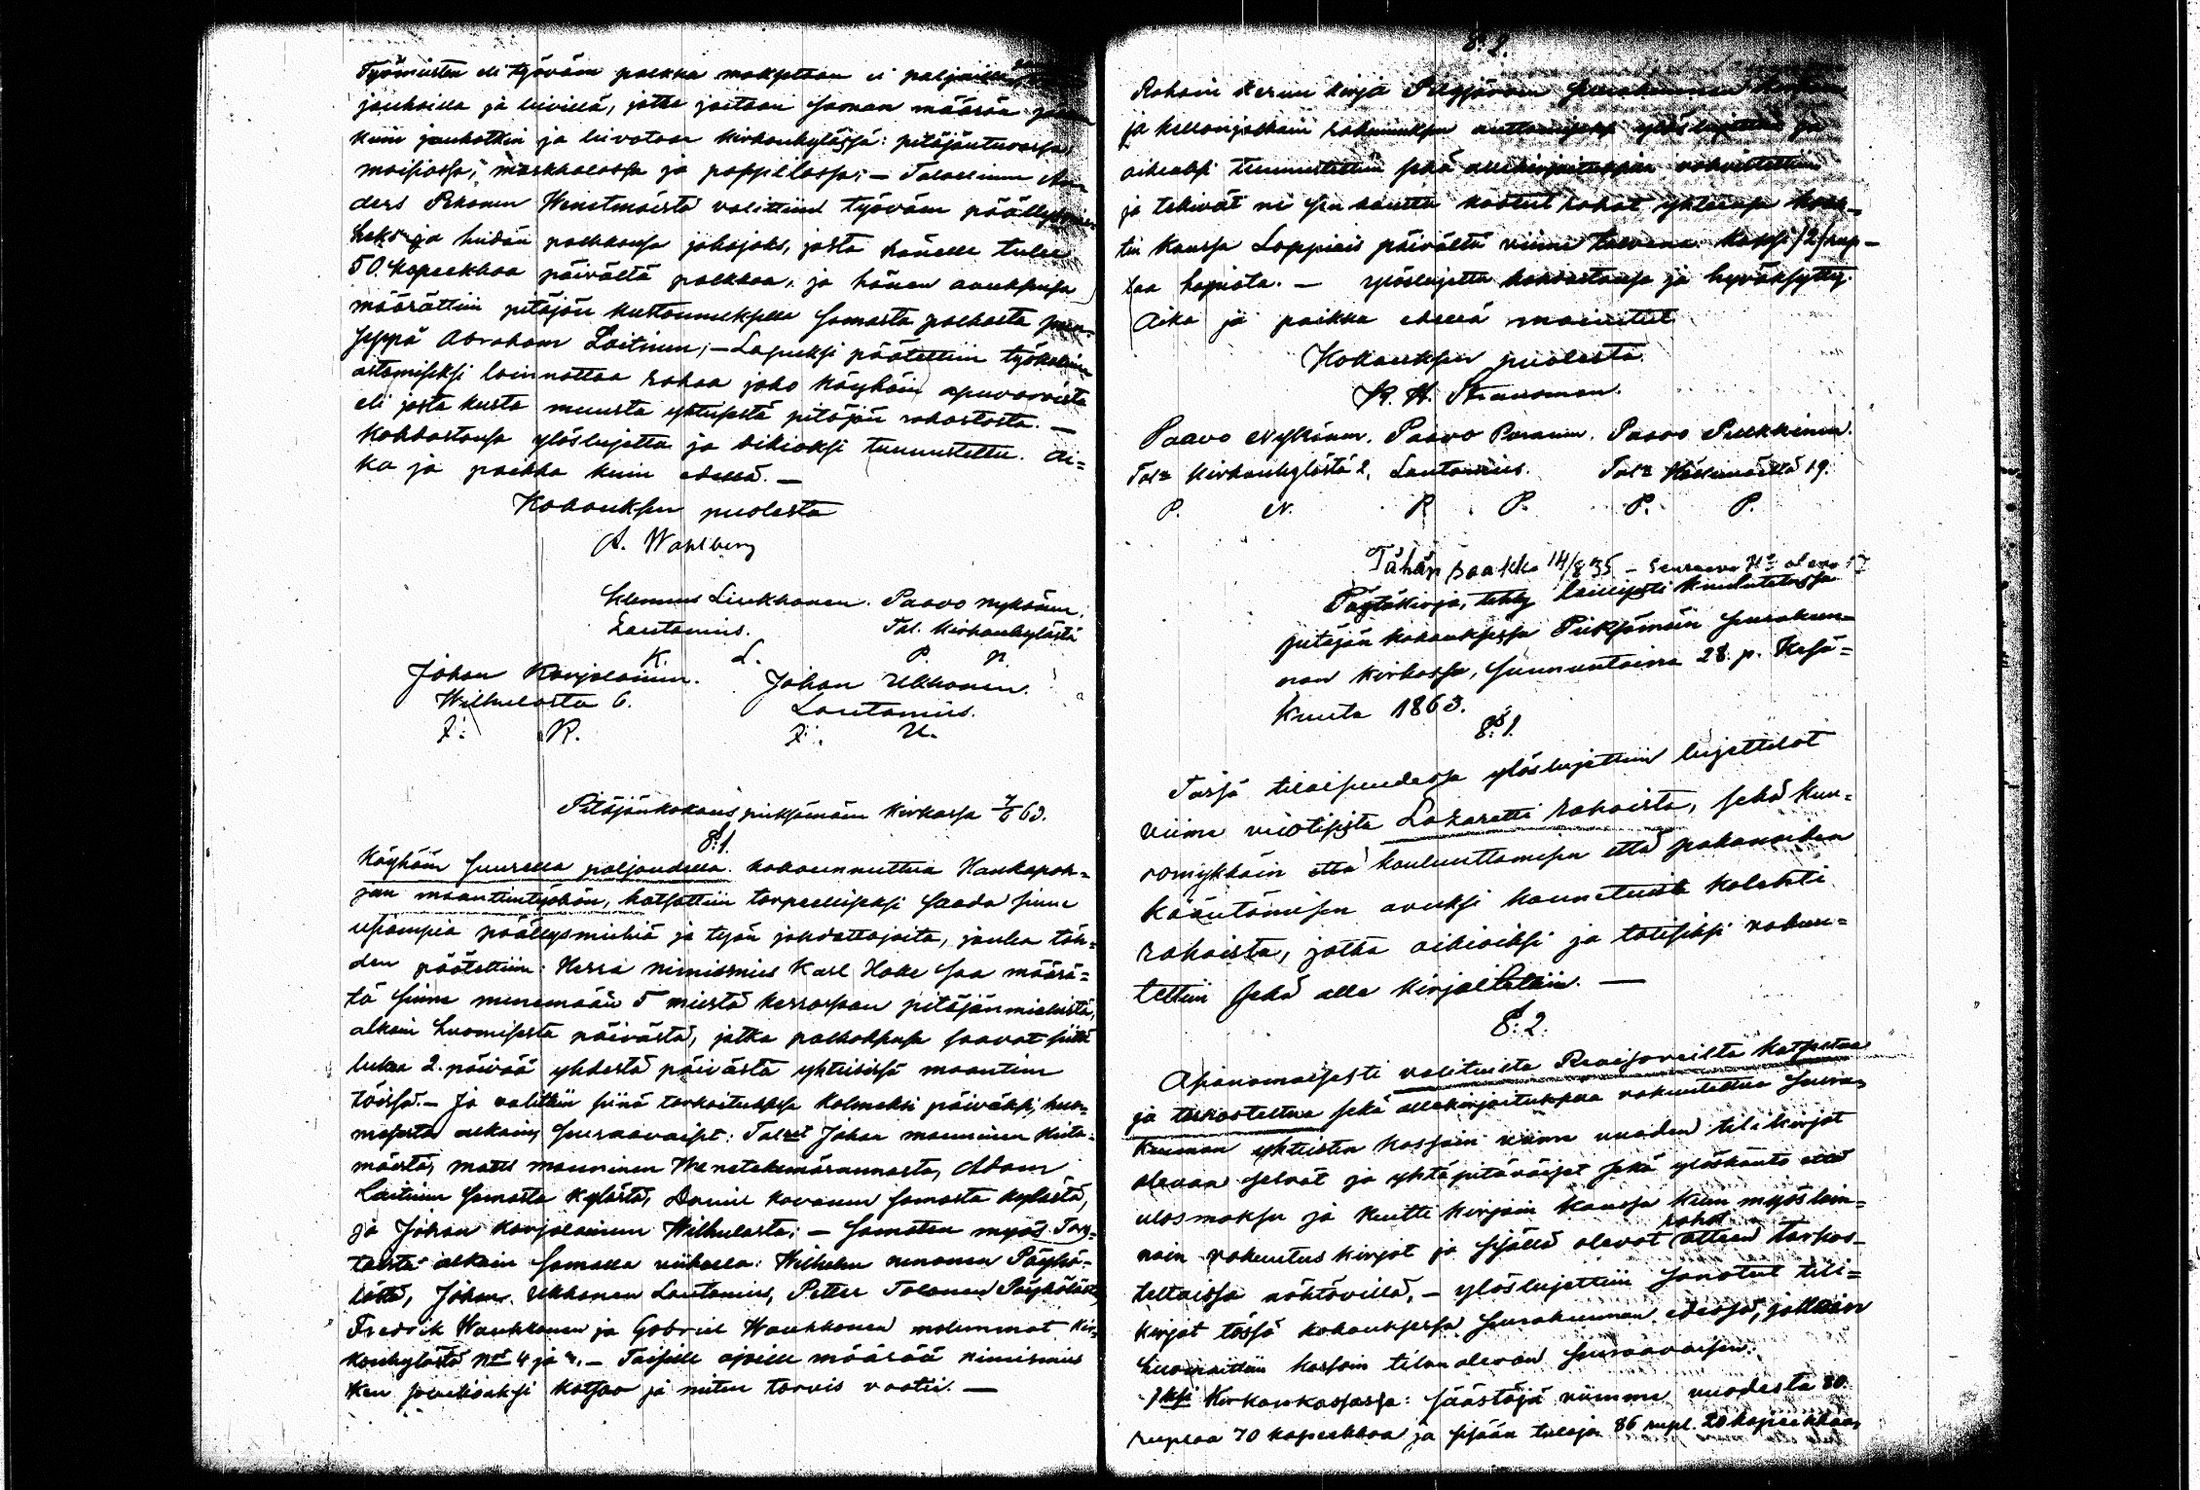 Työmiesten eli työväen palkka maksetaan ei paljailla
jauhoilla ja leivillä, jotka jaetaan saman määrän
kuin jauhotkin ja leivotaan kirkonkylässä: pitäjäntuvassa,
moisiossa, markkalassa ja pappilassa; — Talollinen An-
ders Pekonen Wenetmäestä valittiin työväen päällysmie-
heksi ja heidän palkkansa jakajaksi, josta hänelle tulee
50 kopeekkaa päivältä palkkaa, ja hänen avuksensa
määrättiin pitäjän kustannuksella samasta palkasta
seppä Abraham Laitinen; — Lopuksi päätettiin työkaluin
ostamiseksi lainnattaa rahaa joko Köyhäin apuvaroista
eli josta kusta muusta yhteisestä pitäjän rahastosta. —
Kohdastansa ylöslujettu ja oikiaksi tunnustettu. Ai=
ka ja paikka kuin edellä. —
Kokouksen puolesta
A. Wahlberg
Klemens Liukkonen. Paavo Nykänen,
Lautamies. Tal. Kirkonkylästä
K. L. P. N.
Johan Karjalainen. Johan Ukkonen.
Wilhulasta 6. Lautamies.
J. K. J. U.
Pitäjänkokous pieksämäen kirkossa 7/6 63.
§. 1.
Köyhäin suurella paljoudella kokounnuttua Haukapoh=
jan maantientyöhön, katsottiin tarpeelliseksi saada sinne
useampia päällysmiehiä ja työn johdattajoita, jonka täh=
den päätettiin: Herra nimismies Karl Hoke saa määrä=
tä sinne menemään 5 miestä kerrassaan pitäjänmiehistä,
alkain huomisesta päivästä, jotka palkaksensa saavat siitä
lukea 2. päivää yhdestä päivästä yhteisissä maantien
töissä. — Ja valittiin siinä tarkoituksessa kolmeksi päiväksi, huo=
misesta alkain, seuraavaiset: Talset Johan manninen Kuta=
mäestä, matts manninen Wenetekemärannasta, Adam
Laitinen samasta kylästä, Daniel Kovanen samasta kylästä,
ja Johan Karjalainen Wilhulasta; — samoten myös Tors=
taista alkain samalla viikolla: Wilhelm nenonen Päyhö=
lästä, Johan Ukkonen Lautamies, Petter Tolonen Päyhölästä,
Fredrik Waukkonen ja Gabriel Waukkonen molemmat Kir=
konkylästä No 4 ja 3. — Toiselle ajalle määrää nimismies
sen soveliaaksi katsoo ja miten tarvis vaatii. —
§. 2.
Rahain keruu kirja Pielisjärven seurakunnan kirkon
ja kellonjalkain rakennuksen auttamiseksi ylösluettiin ja
oikeaksi tunnustettiin sekä allekirjoituksien vahvistettiin
ja tekivät ne sen kautta kootut rahat yhteensä
tin kanssa Loppiais päivältä viime talvena kaksi /2/ rup-
laa hopiata. — Ylösluettu kohdastansa ja hyväksytty.
Aika ja paikka edellä mainitut
Kokouksen puolesta
K. H. Strandman.
Paavo Nykänen. Paavo Paranen. Paavo Pulkkinen.
Talz Kirkonkylästä 2. Lautamies. Talz Häkinmäeltä 19.
P. N. P. P. P. P.
Tähän saakka 14/8 35 — seuraava No alkaa
Pöytäkirja, tehty laillisesti kuulutetussa
pitäjän kokouksessa Pieksämäen seurakun=
nan kirkossa, sunnuntaina 28. p. Kesä=
kuuta 1863.
§. 1.
Tässä tilaisuudessa ylösluettiin luettelot
viime vuotisista Lasaretti rahoista, sekä kuu=
romykkäin että kouluuttamisen että pakanoiden
kääntämisen avuksi kannetuista kolehti
rahoista, jotka oikioiksi ja totisiksi vakuu=
tettiin sekä alle kirjoitettiin. —
§. 2.
Asianomaisesti valituista Revisoreilta katsottua
ja tarkasteltua sekä allekirjoituksella vakuutettua seura=
kunnan yhteisten kassain viime vuoden tilikirjat
olevan selvät ja yhtäpitäväiset sekä ylöskanto että
ulosmaksu ja kuitti kirjain kanssa kuin myös lain=
nain vakuutus kirjat ja sisällä olevat rahat ottaen tarkas=
teltaissa nähtävillä, — ylösluettiin sanotut tili=
kirjat tässä kokouksessa seurakunnan edessä, jolloin
huomattiin kassain tilan olevan seuraavaisen:
1ksi Kirkonkassassa: säästöjä viimme vuodesta 80
ruplaa 70 kopeekkaa ja sisään tuloja 86 rupl. 20 kopeekkaa,